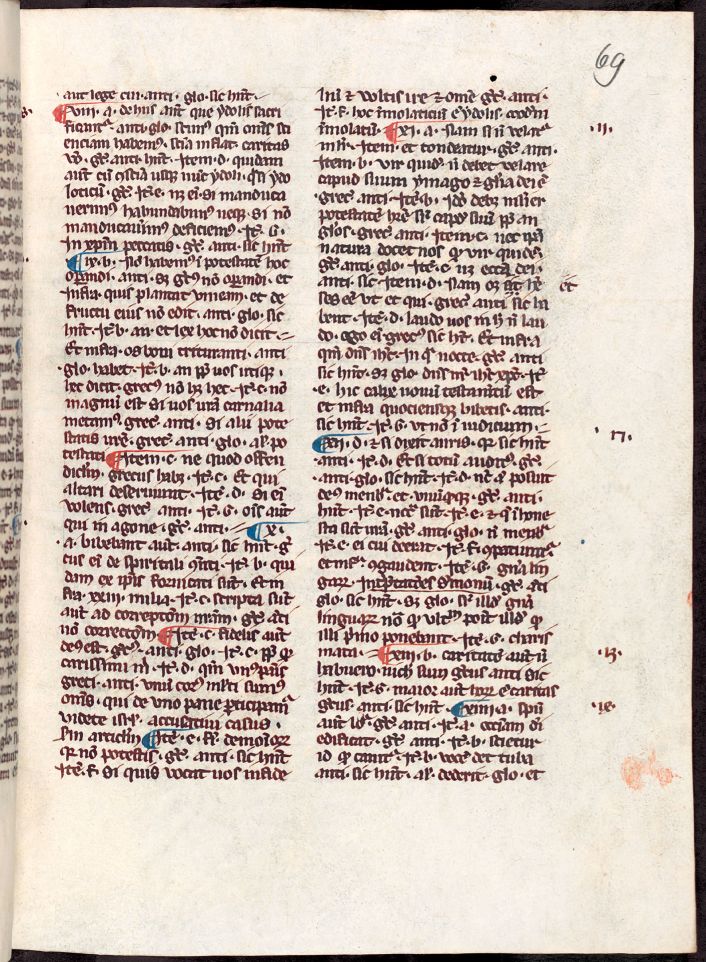 69
aut lege cui · anti · glo · sic hn̄t ·
¶ viii · a · de hiis aūt que ydolis sacri
ficant᷑ · anti · glo · scim᷒ qm̄ om̄s sci
enciam habem᷒ · scīa inflat · caritas
v̊ · gr̄c · anti · hn̄t · Item · d · quidam
aūt cū ꝯsciā usꝫ nūc ydoli · q̄si ydo
loticū · gr̄c · It̄ · e · nꝫ ei᷒ si manduca
uerim᷒ habundabim᷒ neqꝫ · Si nō
manducauerim᷒ deficiem᷒ · It̄ · G ·
In xp̄m peccatis · gr̄c · anti · sic hn̄t
¶ ix · b · Nō habem᷒ i potestatē hoc
oꝑandi · anti · Sꝫ gr̄c᷒ nō oꝑandi · et
infra · quis plantat vineam · et de
fructu eius nō edit · anti · glo · sic
hn̄t · It̄ · b · an · et lex hoc nō dicit ·
Et infra · os boui trituranti · anti
· glo · habet · It̄ · b · an ꝓp̄ uos utiqꝫ ·
hec dicit · grec᷒ nō hꝫ hec · It̄ · c · nō
magnū est si uos ur̄a carnalia
metam᷒ · grec · anti · Si alii pote
statis ur̄e · grec · anti · glo · al᷒ · po
testati ¶ Item · c · ne quod offen
diclm̄ · grecus habꝫ · It̄ · c · Et qui
altari deseruiunt · It̄e · d · Si ei᷒
uolens · grec · anti · It̄ · G · oīs aūt
qui in agone · gr̄c · anti · ¶ x ·
· a · bibebant aūt · anti · sic hn̄t · g᷑
cus ei᷒ de spiritali ꝯn̄ti · It̄ · b · qui
dam ex ip̄is fornicati sūt · Et in
fra · xxiii · milia · It̄ · c · scripta sūt
aūt ad correptōm nr̄am · gr̄c · āti
nō correctōm ¶ It̄e · c · fidelis aūt
de᷒ est · gr̄c᷒ · anti · glo · It̄ · c · ꝓp̄ qꝫ
carissimi m̄ · It̄ · d · qm̄ vn᷒ panis
greci · anti · vnū corꝯ mlti sum᷒
om̄s · qui de vno pane participam᷒
videte isrl᷒ · accusatiui casus ·
Sin articlm̄ ¶ It̄e · e · ff · demonioꝝ
qꝛ nō potestis · gr̄c · anti · sic hn̄t
It̄e · F · Si quis vocat uos infide
liū ⁊ voltis ire ⁊ om̄e gr̄c · anti ·
It̄ · F · hoc īmolaticiū ē ydolis · eodm̄
īmolatū · ¶ xi · a · Nam si n̄ velat᷑
mlr̄ · Item · et tondeatur · gr̄c · anti ·
Item · b · vir quid᷒ n̄ debet velare
capud suum ymago ⁊ gl̄ia dei ē
grec᷒ · anti · It̄e · b · Ideo debꝫ mulier
potestatē hr̄e sr̄ capꝯ suū ꝓp̄ an
glos · grec · anti · Item · c · nec ip̄a
natura docet nos qꝫ vir quides
gr̄c · anti · glo · It̄e · c · nꝫ ecc̄a dei ·
anti · sic · Item · d · Nam oꝫ ⁊ he
ses ēē ut et qui · grec · anti · sic ha
bent · It̄e · d · laudo uos in hꝭ n̄ lau
do · ego ei᷒ grec᷒ sic hn̄t · Et infra
qm̄ dn̄s ih̄c · in q̄ nocte · gr̄c · anti
sic hn̄t · Sꝫ glo · dn̄s nr̄ ih̄c xp̄c · It̄
· e · hic calix nouū testamētū est
et infra quociensqꝫ bibetis · anti ·
sic hn̄t · It̄ · G · vt nō i iudicium ·
¶ xii · d · ⁊ si dixerit auris · qꝛ sic hn̄t
anti · It̄ · d · Et si totū audit᷒ · gr̄c ·
· anti · glo · sic hn̄t · It̄ · d · nc̄ q̄ posuit
de᷒ menbr̄ · et vnūqꝫqꝫ · gr̄c · anti ·
hn̄t · It̄ · c · ncc̄ sūt · It̄ · e · ⁊ q̄ ī hone
sta sūt ur̄a · gr̄c · anti · glo · n̄ menbr̄
It̄ · e · ei cui deerit · It̄ · F · ꝯpatiunt᷑
et mr̄ᵃ · ꝯgaudent · It̄e · G · gn̄a lin
guaꝝ · Int̄ptatōes ẜmonū · gr̄c · āti
glo · sic hn̄t · Sꝫ glo · sr̄ illd̄ gn̄a
linguaꝝ nō qꝫ vltīo post illd̄ qꝫ
illi p̄mo ponebant · It̄e · G · charis
mata · ¶ xiii · b · caritatē aūt n̄
habuero · nichil sum gr̄cus anti sic
hn̄t · It̄ · G · maior aūt hoꝝ ē caritas
gr̄cus · anti · sic hn̄t · ¶ xiiii · a · spū
aūt lo᷑ · gr̄c · anti · It̄ · a · ecciam dī
edificat · gr̄c · anti · It̄e · b · scietur
id q̄ canit᷑ · It̄ · b · vocē det tuba
anti · sic hn̄t · al᷒ · dederit · glo · et
· 11 ·
et
· 12 ·
· 13 ·
· 14 ·